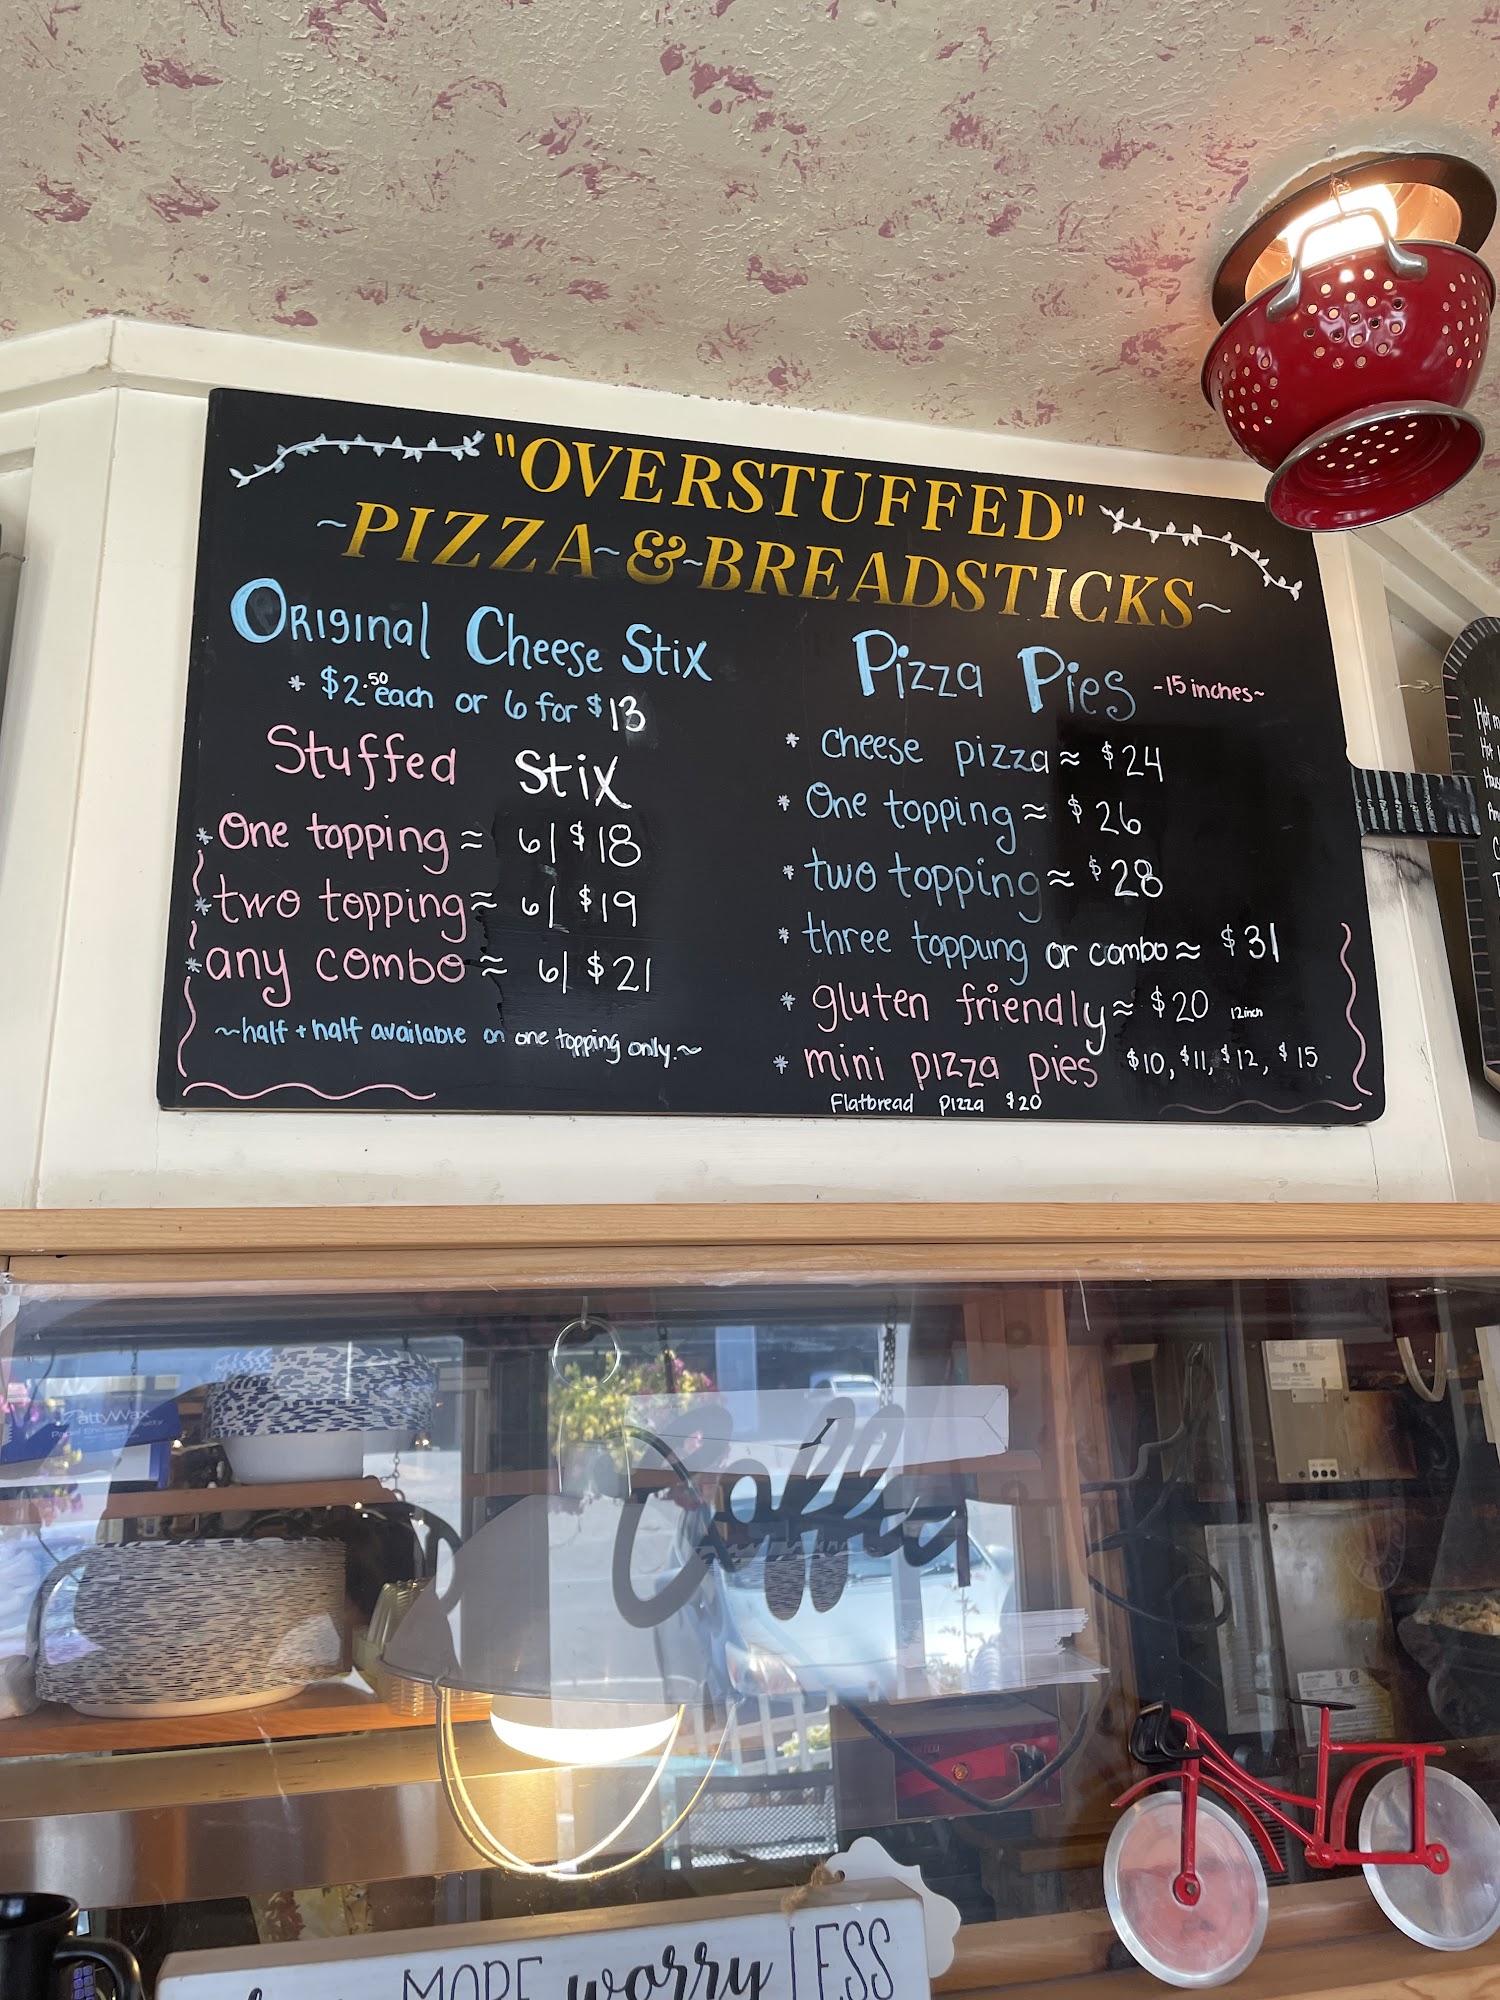 "OVERSTUFFED"
~PIZZA~&~BREADSTICKS~
Original Cheese Stix
* $2.50 each or 6 for $13
Stuffed Stix
* One topping ≈ 6/ $18
* two topping ≈ 6/ $19
* any combo ≈ 6/ $21
~half + half available on one topping only.~
Pizza Pies -15 inches~
* cheese pizza ≈ $24
* One topping ≈ $26
* two topping ≈ $28
* three toppung or combo ≈ $31
* gluten friendly ≈ $20 12inch
* mini pizza pies $10, $11, $12, $15
Flatbread pizza $20
Hot
attyWax
MORE worry LESS